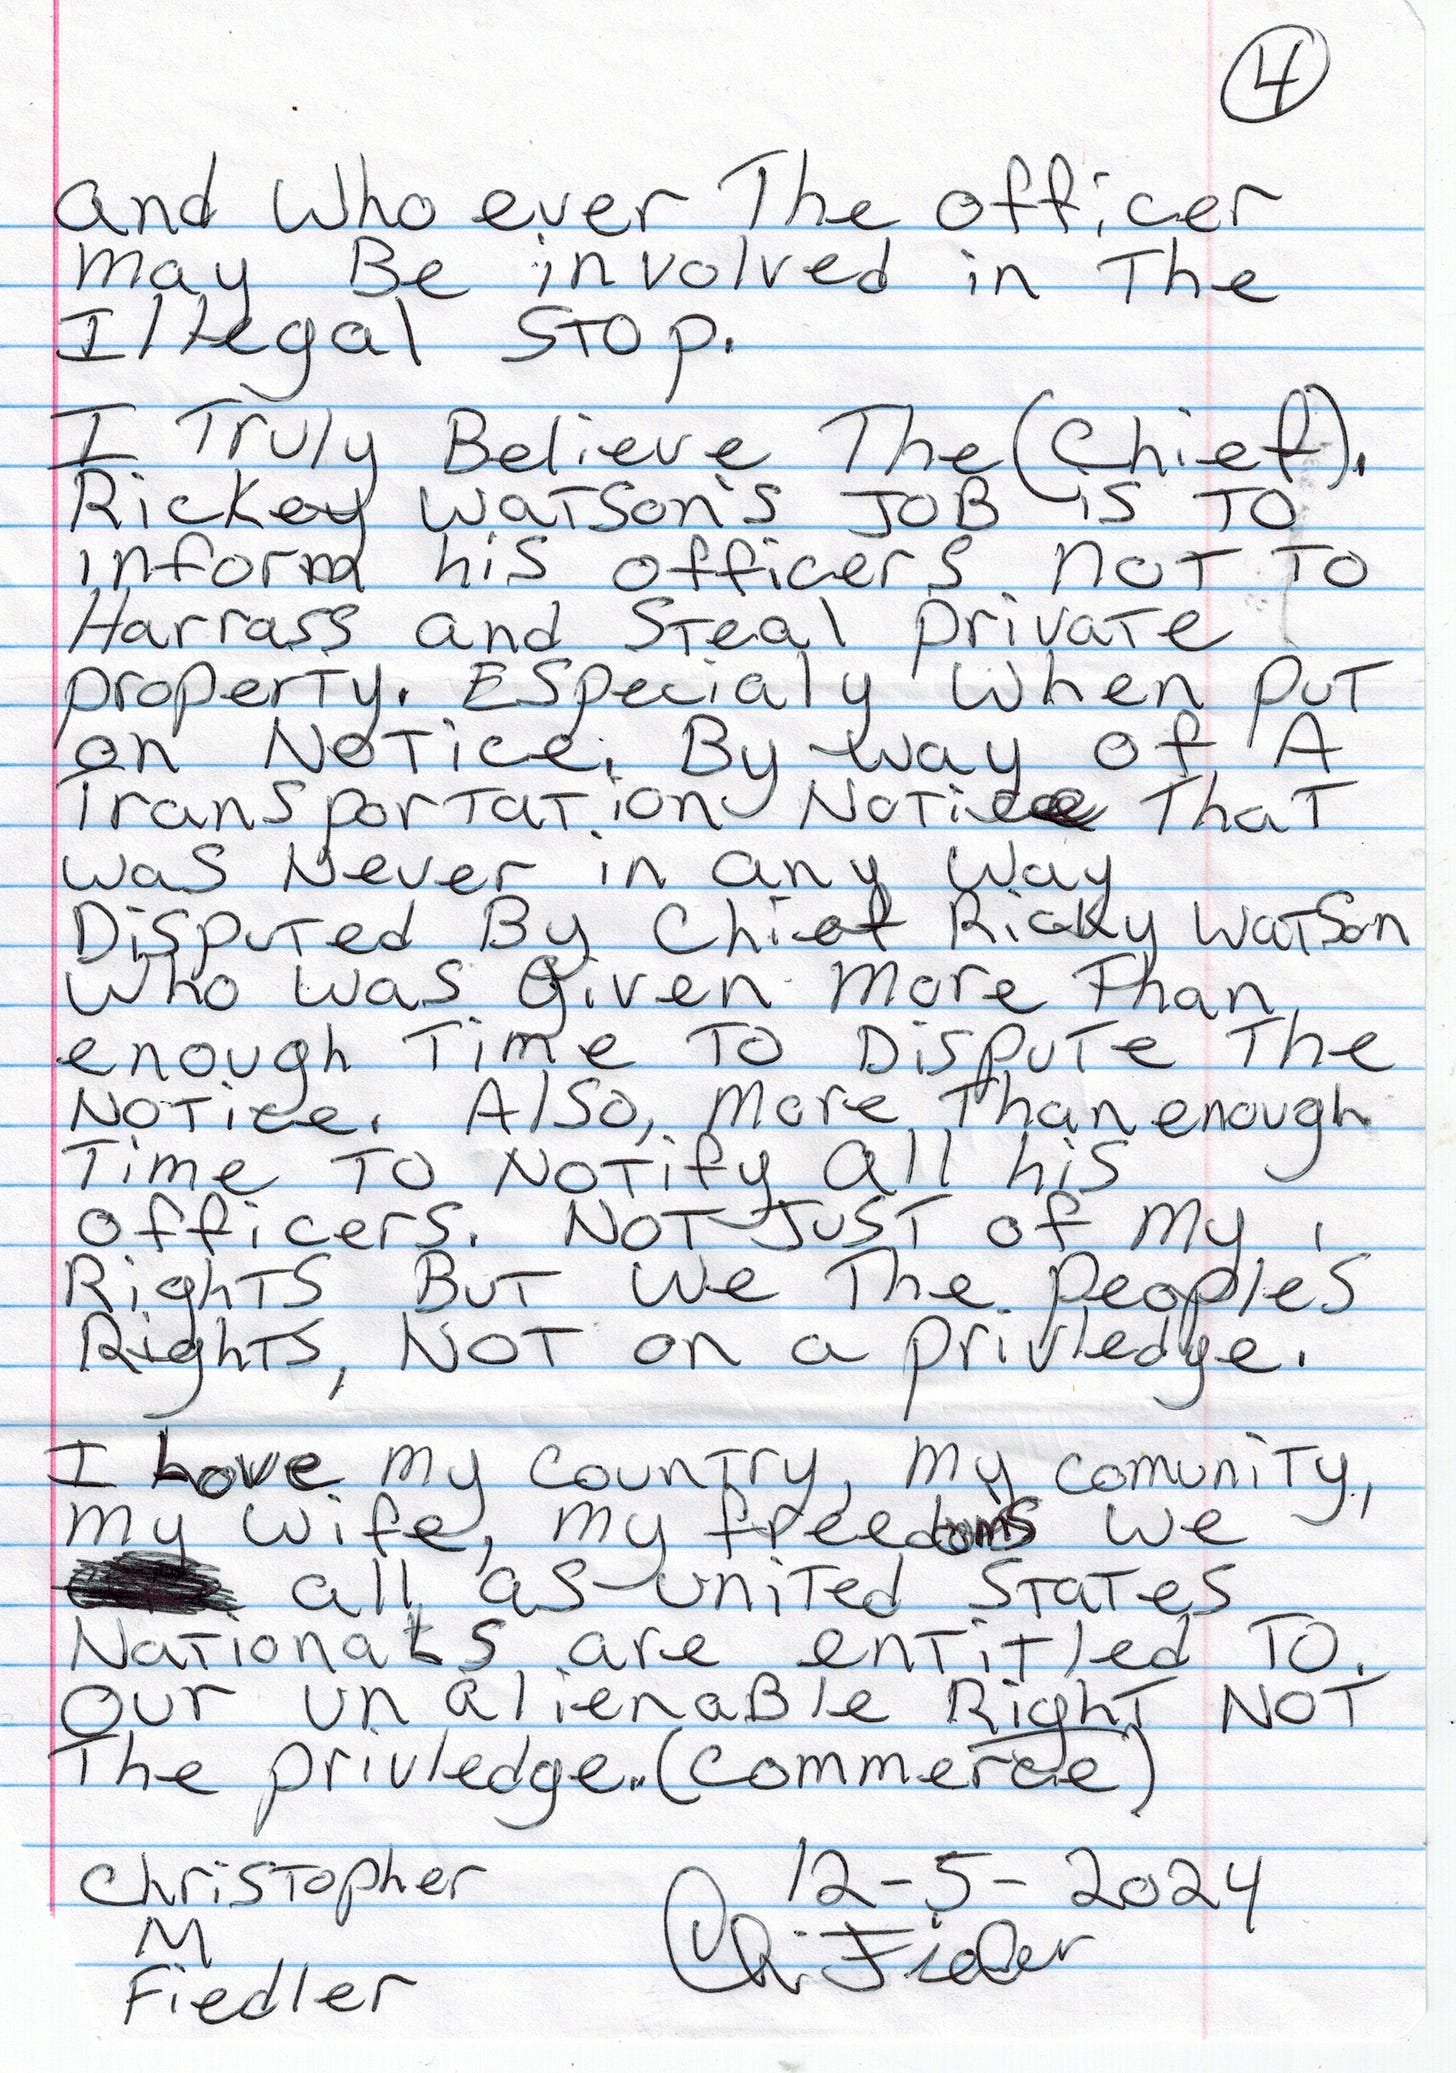 4
and Who ever The officer
may Be involved in The
Illegal STOP.
I Truly Believe The (Chief).
Rickey WaTson's JOB is TO
inform his officers noT TO
Harrass and STeal privaTe
properTy. ESpecialy When puT
on NoTice. By way of A
TransporTaTion NoTice ThaT
was Never in any way
DispuTed By Chief Ricky WaTson
Who was Given more Than
enough Time To DispuTe The
NoTice. Also, more Than enough
Time To NoTify all his
officers. NoT JusT of my
RighTs BuT We The peoples
RighTs, NoT on a privledge.
I Love my counTry, my comuniTy,
my wife, my freedoms we
all as uniTed STaTes
NaTionaLs are enTiTled To.
Our un alienaBle RighT NOT
The privledge..(commerce)
ChrisTopher 12-5-2024
M
Fiedler